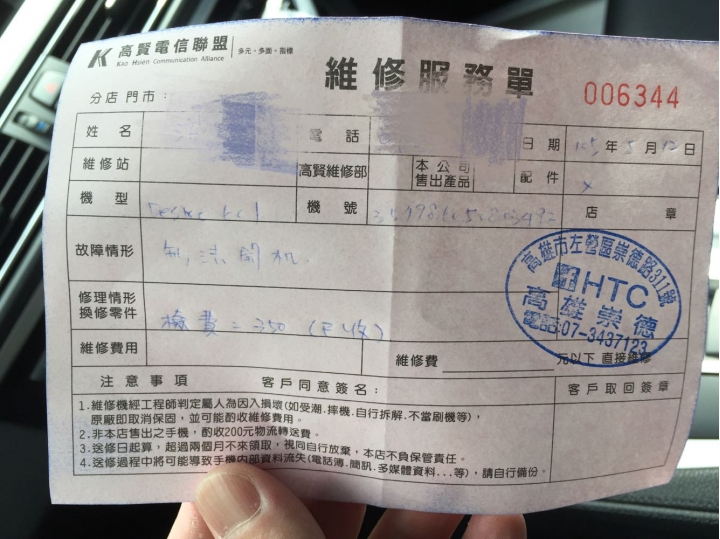 高賢電信聯盟 多元・多面・指標
Kao Hsien Communication Alliance
維修服務單
006344
分店門市：
姓名 電話 日期 105年5月12日
維修站 高賢維修部 本公司售出產品 配件 x
機型 機號 店章
故障情形 無法開机.
修理情形
換修零件 檢費=350 (已收)
維修費用 維修費 元以下 直接維修
高雄市左營區崇德路311號
HTC
高雄崇德
電話:07-3437123
注意事項 客戶同意簽名： 客戶取回簽章
1.維修機經工程師判定屬人為因入損壞(如受潮.摔機.自行拆解.不當刷機等)，
原廠即取消保固，並可能酌收維修費用。
2.非本店售出之手機，酌收200元物流轉送費。
3.送修日起算，超過兩個月不來領取，視同自行放棄，本店不負保管責任。
4.送修過程中將可能導致手機內部資料流失(電話簿.簡訊.多媒體資料...等)，請自行備份。